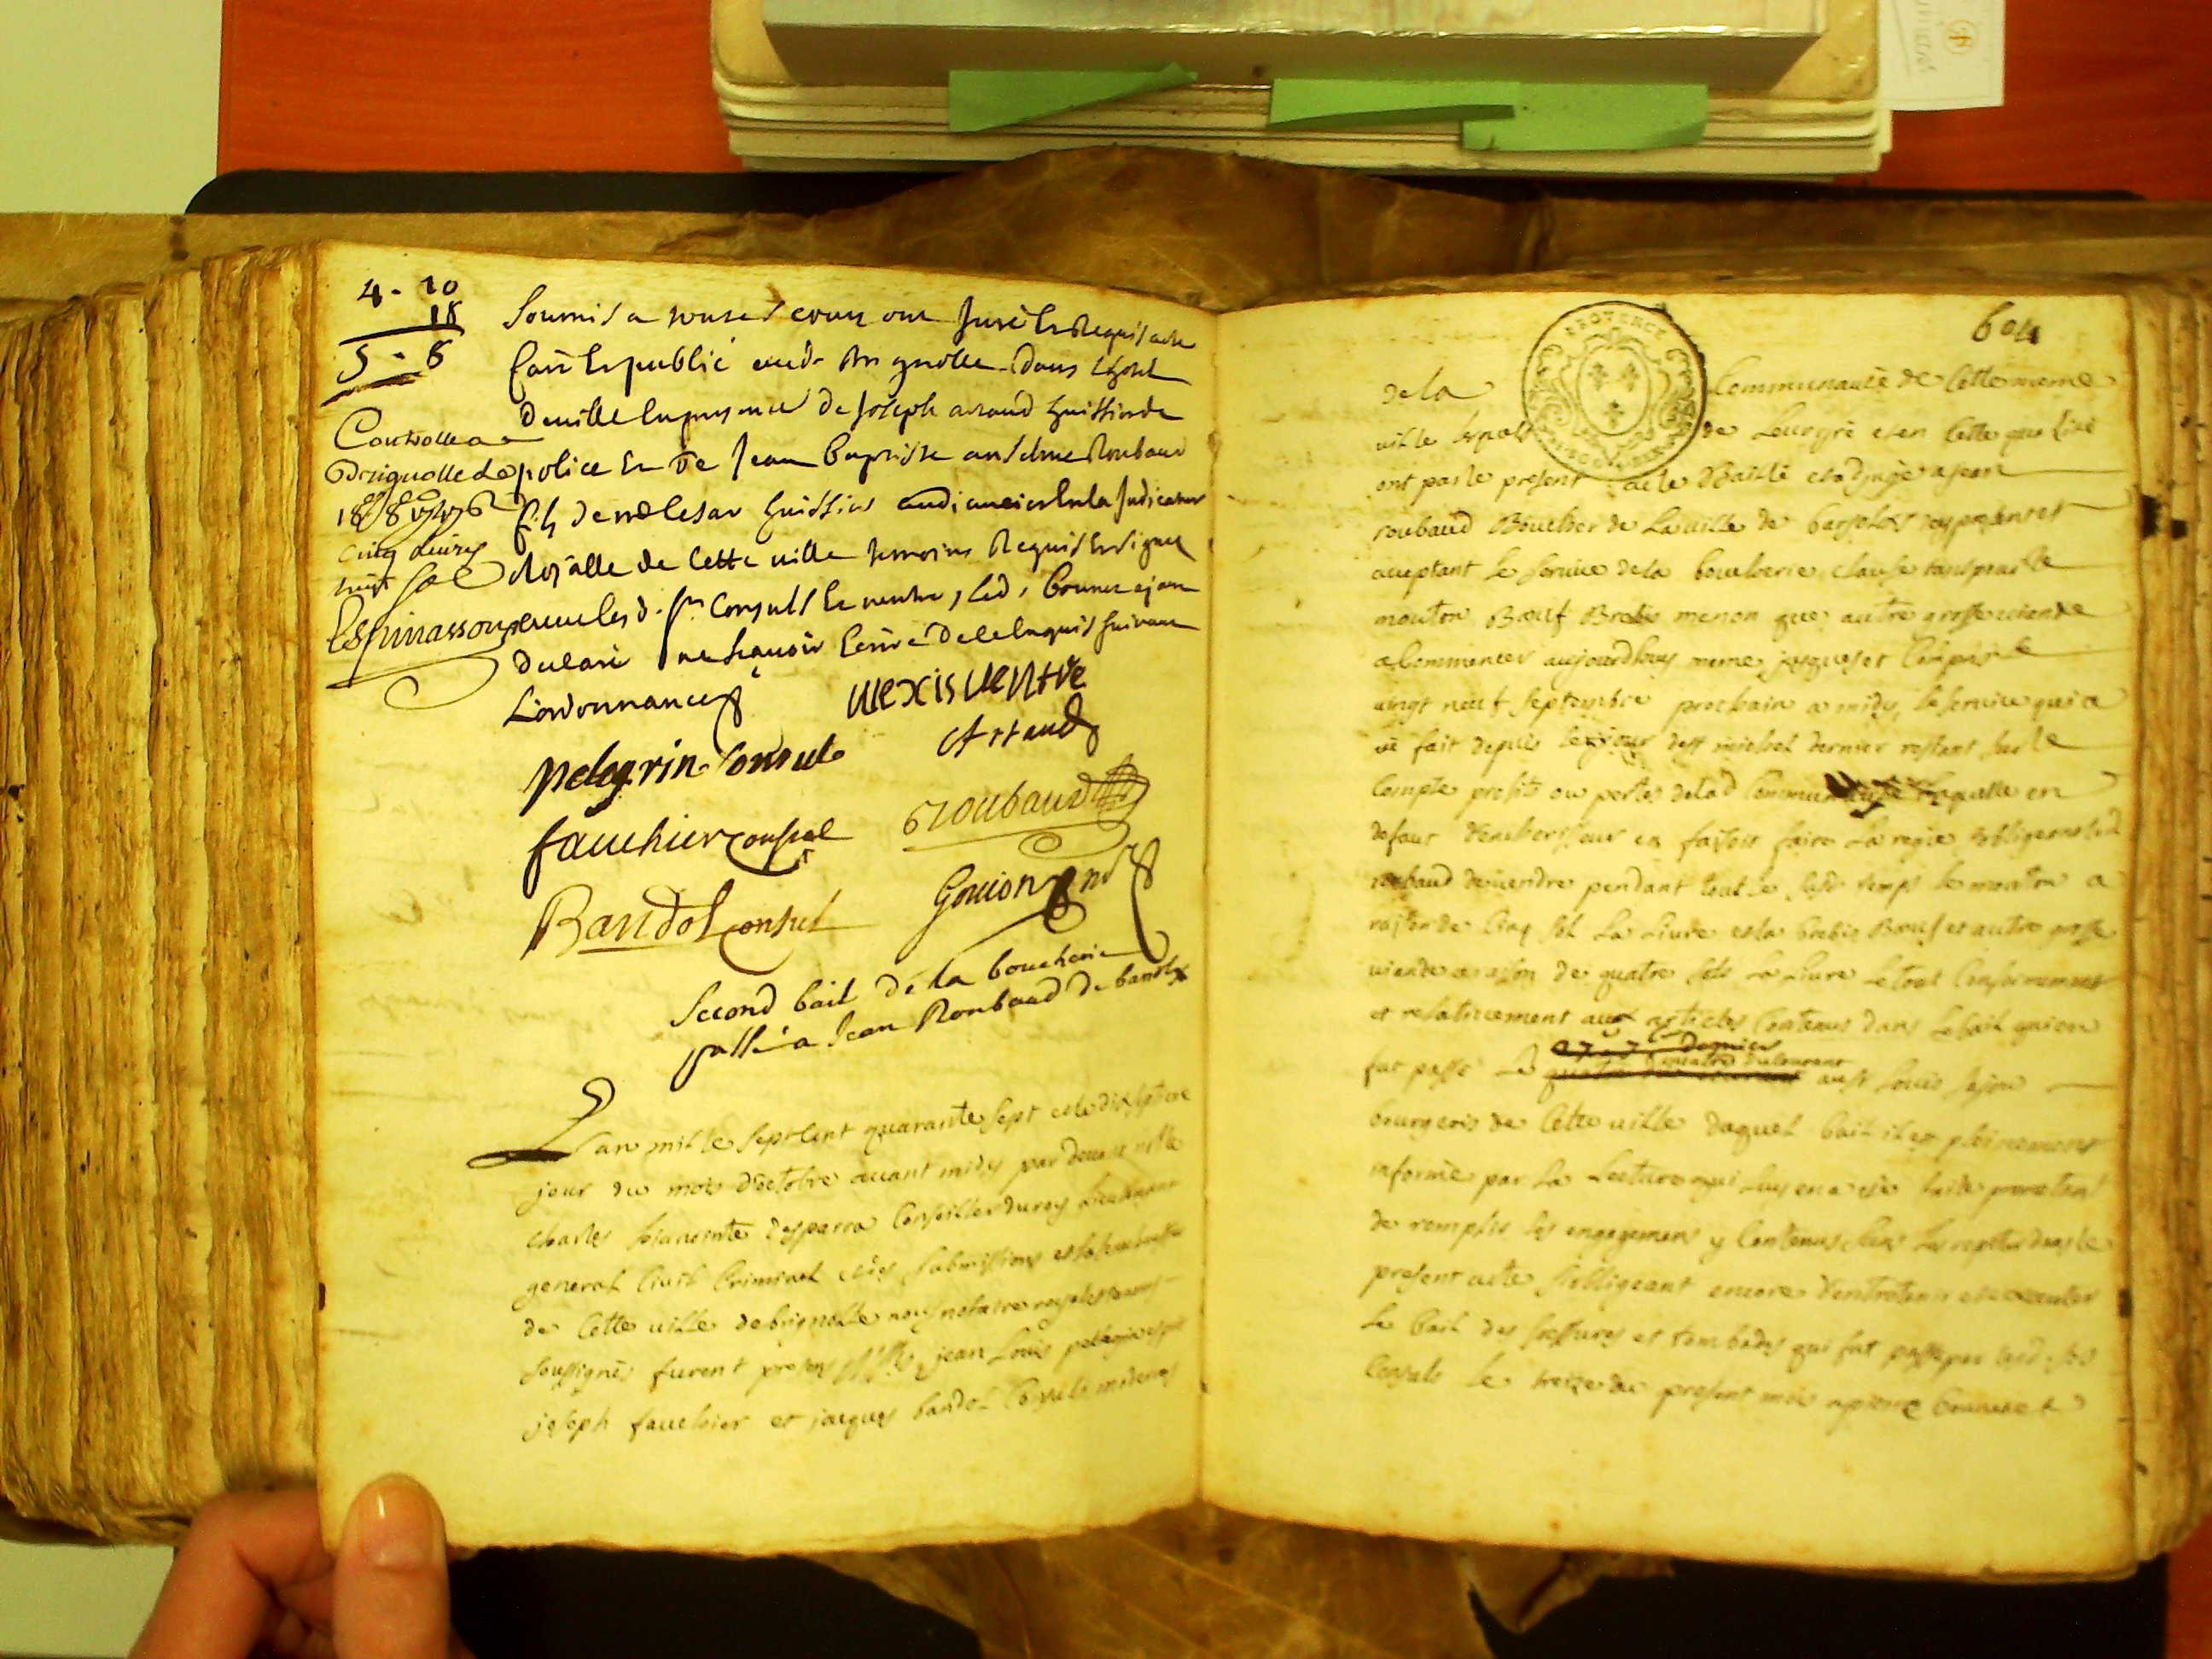 4 - 10
18
5 - 8
Controlle a
Brignolle le
18 8bre 1747
cinq livres
huit sols
Espinasson
soumis a toutes cours ont juré et requis acte
fait et publié aud. Brignolle dans lhotel
deville en presence de joseph artaud huissier de
police et de jean baptiste anselme Roubaud
huissier audiancier en la judicature
Royalle de cette ville temoins requis et signés
avec les d. srs consuls et ventre, led. bonnet ayant
declaré ne scavoir ecrire de ce enquis suivant
l'ordonnance
alexis ventre
pelegrin Consul
Artaud
fauchier consul
Roubaud
Bandol consul
Goujon
Second bail de la boucherie
passé a jean Roubaud de barjolx
L'an mille sept cent quarante sept et le dix septieme
jour du mois d'octobre avant midy par devant
charles hiacinte desparra conseiller du roy lieutenant
general civil criminel et des submissions
de cette ville de brignolle nous notaire royal
soussignés furent presens jean Louis pellegrin
joseph fauchier et jacques bandol consuls modernes
604
PROVENCE
de la communauté de cette meme
ville de Lorgré et en cette qualité
ont par le present acte Baillé et adjugé a jean
roubaud Boucher de La ville de barjolx icy present et
acceptant le service de la boucherie close tant pour le
mouton Bœuf Brebis menon que autre grosse viande
a commencer aujourdhuy meme jusques et compris le
vingt neuf septembre prochain a midy, le service qui a
été fait depuis le jour de st michel dernier restant sur le
compte profits ou pertes de lad communauté laquelle en
defaut d'encherisseur en faisoit faire La regie obligeant led
roubaud de vendre pendant tout le susd temps le mouton a
raison de cinq sols La Livre et la brebis Bœuf et autre grosse
viande a raison de quatre sols La Livre le tout conformement
et relativement aux articles contenus dans le bail qui en
dernier
quatre du courant
fut passé Le a sr Louis
bourgeois de cette ville duquel bail il est pleinement
informé par La Lecture qui luy en a été faite promettant
de remplir les engagemens y contenus sans les repeter dans le
present acte s'obligeant encore d'entretenir et executer
Le bail des fressures et tombades qui fut passé par lesd. srs
Consuls Le treize du present mois a pierre bonnet